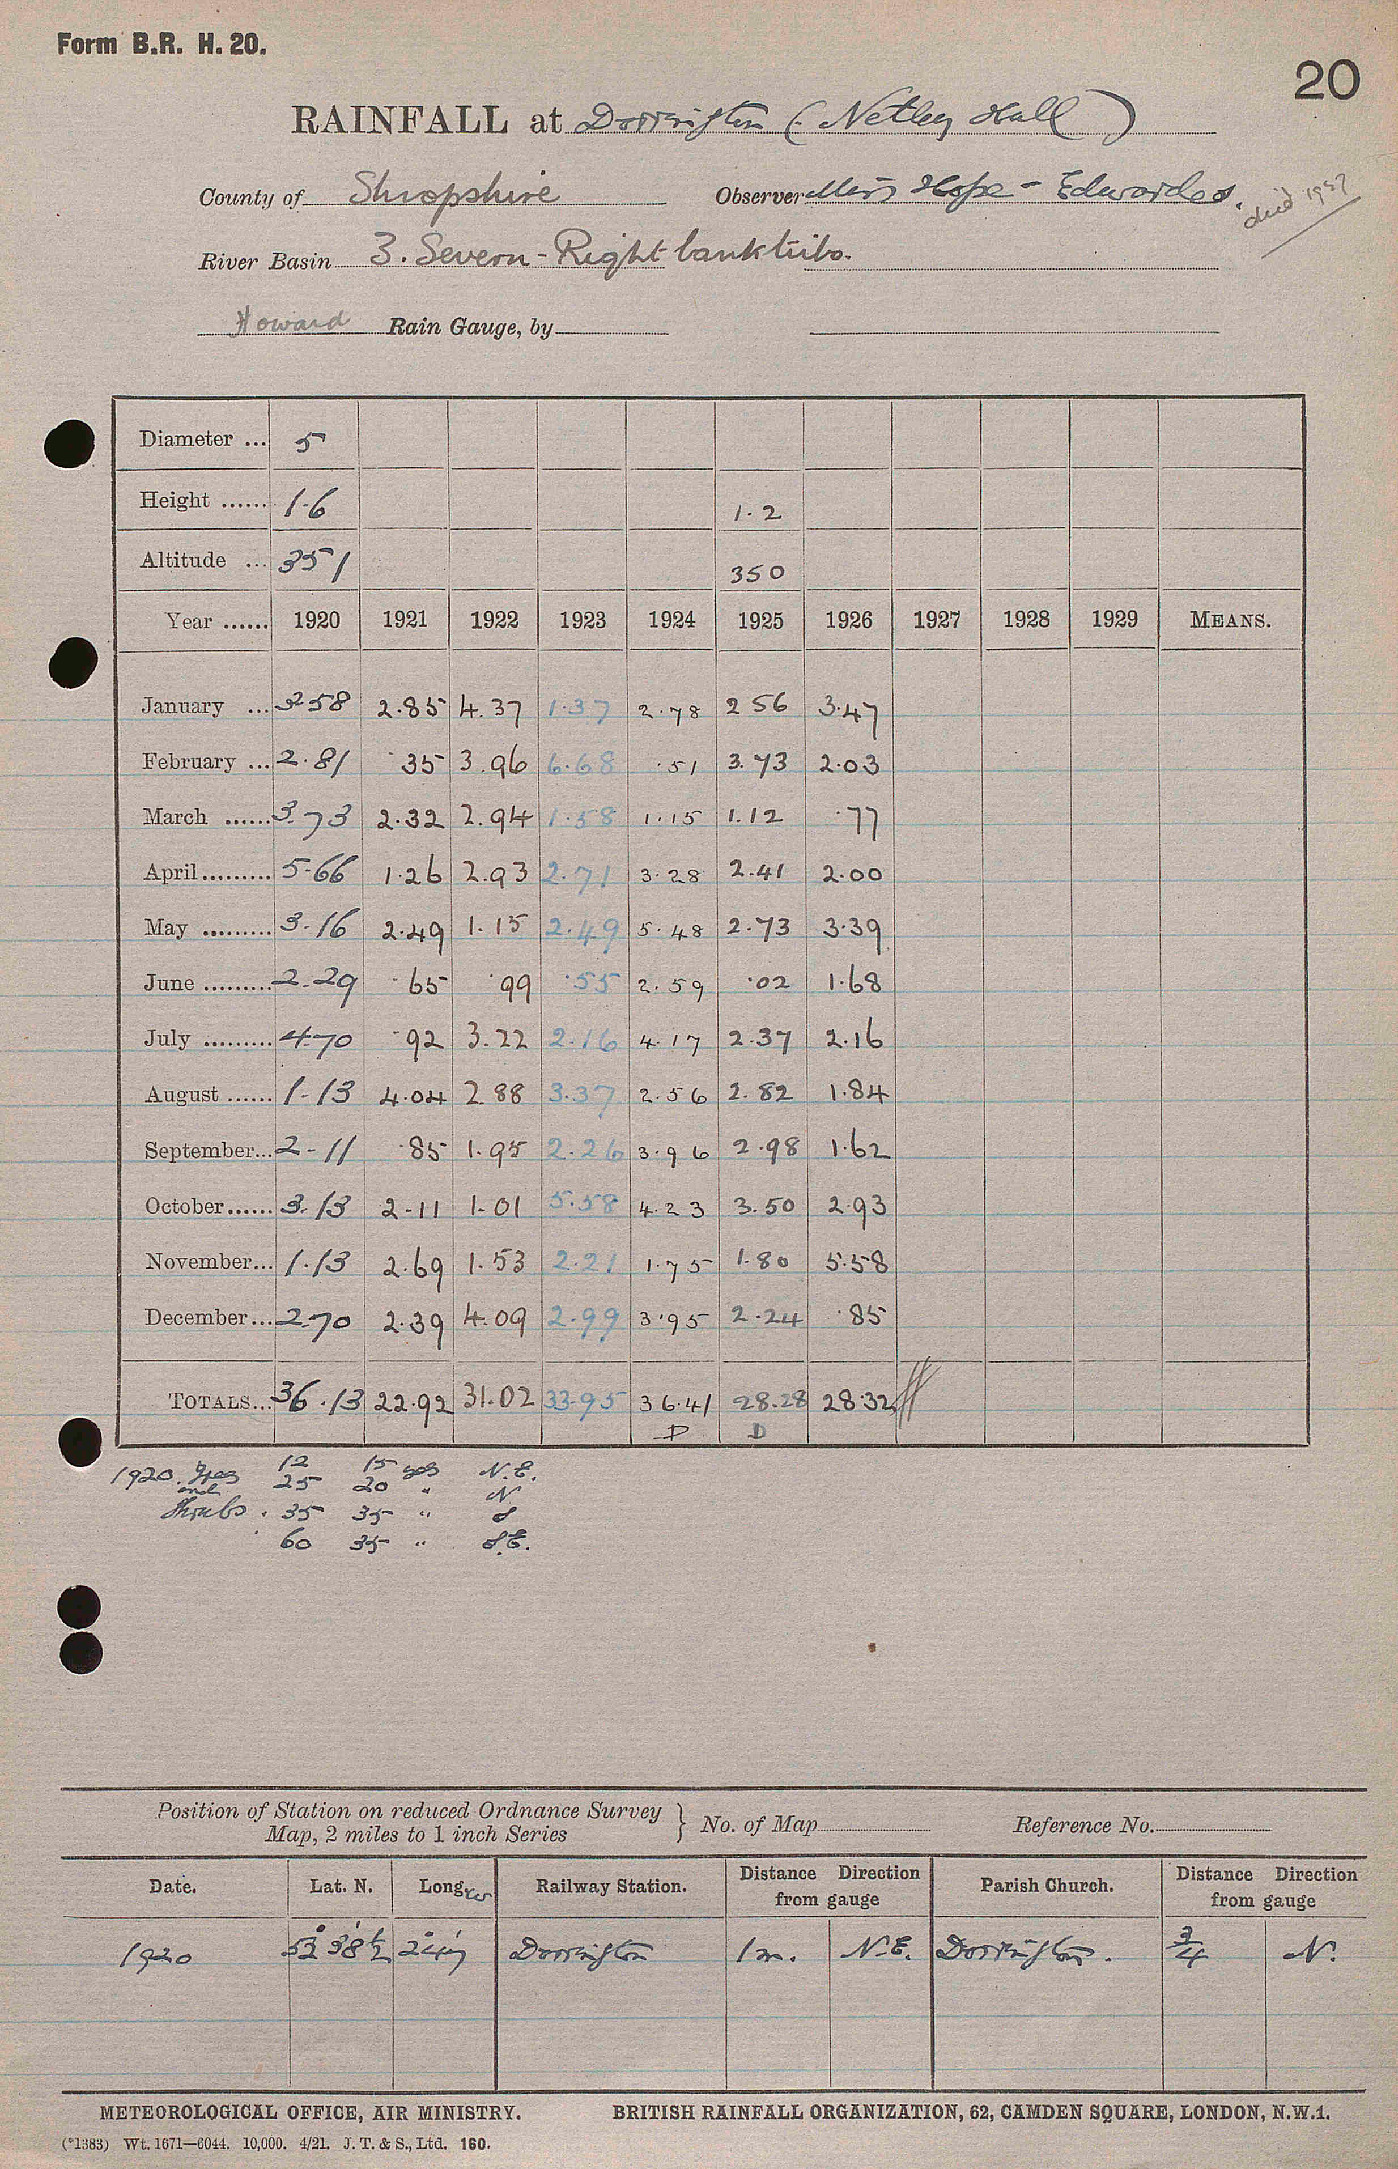 Form B.R. H. 20.
20
RAINFALL at Dorrington (Netley Hall)
County of Shropshire Observer Miss Hope-Edwardes. died 1937
River Basin 3. Severn - Right bank tribs.
Howard Rain Gauge, by
Diameter ... 5
Height ...... 1.6 1.2
Altitude ... 351 350
Year ...... 1920 1921 1922 1923 1924 1925 1926 1927 1928 1929 MEANS.
January ... 3.58 2.85 4.37 1.37 2.78 2 56 3.47
February ... 2.81 .35 3.96 6.68 .51 3.73 2.03
March ...... 3.73 2.32 2.94 1.58 1.15 1.12 .77
April ......... 5.66 1.26 2.93 2.71 3.28 2.41 2.00
May ......... 3.16 2.49 1.15 2.49 5.48 2.73 3.39
June ......... 2.29 .65 .99 .55 2.59 .02 1.68
July ......... 4.70 .92 3.22 2.16 4.17 2.37 2.16
August ...... 1.13 4.04 2 88 3.37 2.56 2.82 1.84
September... 2.11 .85 1.95 2.26 3.96 2.98 1.62
October...... 3.13 2.11 1.01 5.58 4.23 3.50 2.93
November... 1.13 2.69 1.53 2.21 1.75 1.80 5.58
December... 2.70 2.39 4.09 2.99 3.95 2.24 .85
TOTALS... 36.13 22.92 31.02 33.95 36.41 28.28 28.32
D D
1920. Trees 12 15 yds N.E.
and 25 20 " N
Shrubs. 35 35 " S
60 35 " S.E.
Position of Station on reduced Ordnance Survey
Map, 2 miles to 1 inch Series } No. of Map Reference No.
Date. Lat. N. Long. W Railway Station. Distance Direction from gauge Parish Church. Distance Direction from gauge
1920 52° 38½' 2° 47' Dorrington 1 m. N.E. Dorrington. ¾ N.
METEOROLOGICAL OFFICE, AIR MINISTRY. BRITISH RAINFALL ORGANIZATION, 62, CAMDEN SQUARE, LONDON, N.W.1.
(*1383) Wt. 1671—6044. 10,000. 4/21. J. T. & S., Ltd. 160.